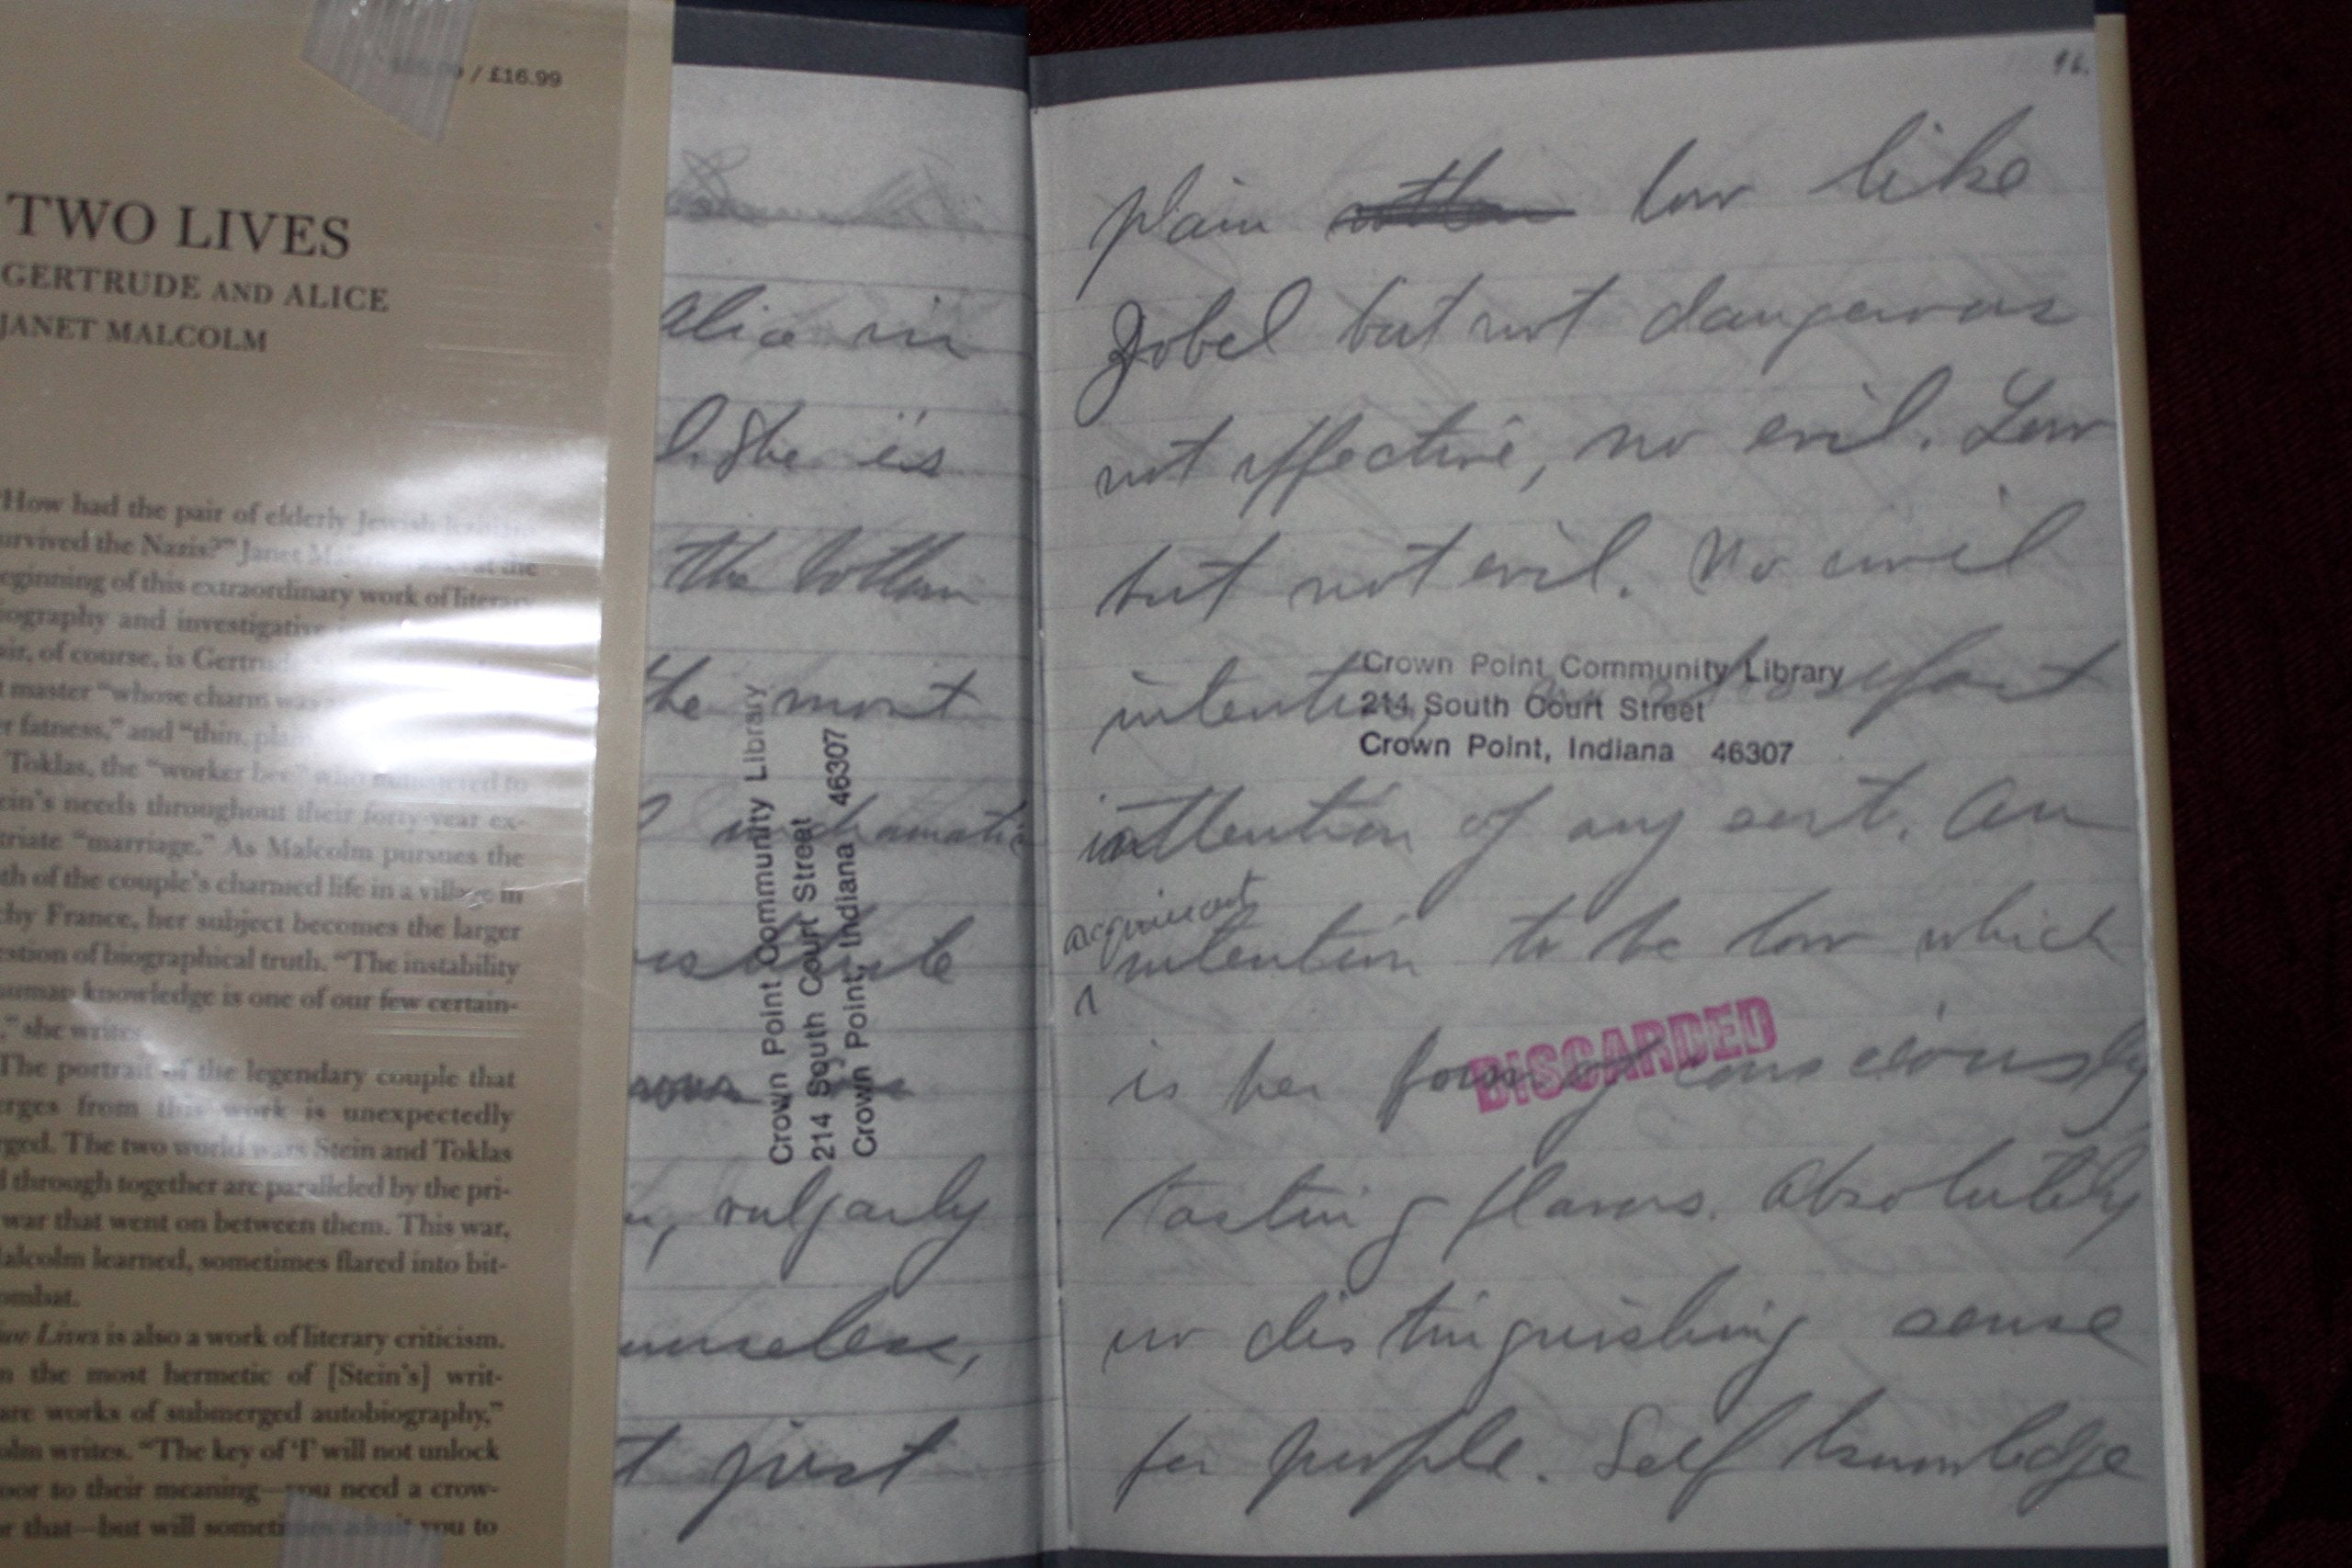 / £16.99
TWO LIVES
GERTRUDE AND ALICE
JANET MALCOLM
"How had the pair of elderly Jewish
survived the Nazis?" Janet at the
beginning of this extraordinary work of literary
biography and investigative
pair, of course, is Gertrude
master "whose charm was
fatness," and "thin, plain
Toklas, the "worker bee" who ministered to
Stein's needs throughout their forty-year ex-
patriate "marriage." As Malcolm pursues the
truth of the couple's charmed life in a village in
Vichy France, her subject becomes the larger
question of biographical truth. "The instability
human knowledge is one of our few certain-
she writes.
The portrait of the legendary couple that
emerges from this work is unexpectedly
charged. The two world wars Stein and Toklas
through together are paralleled by the pri-
war that went on between them. This war,
Malcolm learned, sometimes flared into bit-
combat.
Two Lives is also a work of literary criticism.
the most hermetic of [Stein's] writ-
are works of submerged autobiography,"
Malcolm writes. "The key of 'I' will not unlock
door to their meaning—you need a crow-
for that—but will sometimes admit you to
Alice in
She is
the bottom
the most
undramatic
vulgarly
just
Crown Point Community Library
214 South Court Street
Crown Point, Indiana 46307
16.
plain low like
Zobel but not dangerous
not effective, no evil. Low
but not evil. No evil
intention,
intention of any sort. An
acquiescent
intention to be low which
is her form of consciously
tasting flavors. Absolutely
no distinguishing sense
for people. Self knowledge
Crown Point Community Library
214 South Court Street
Crown Point, Indiana 46307
DISCARDED